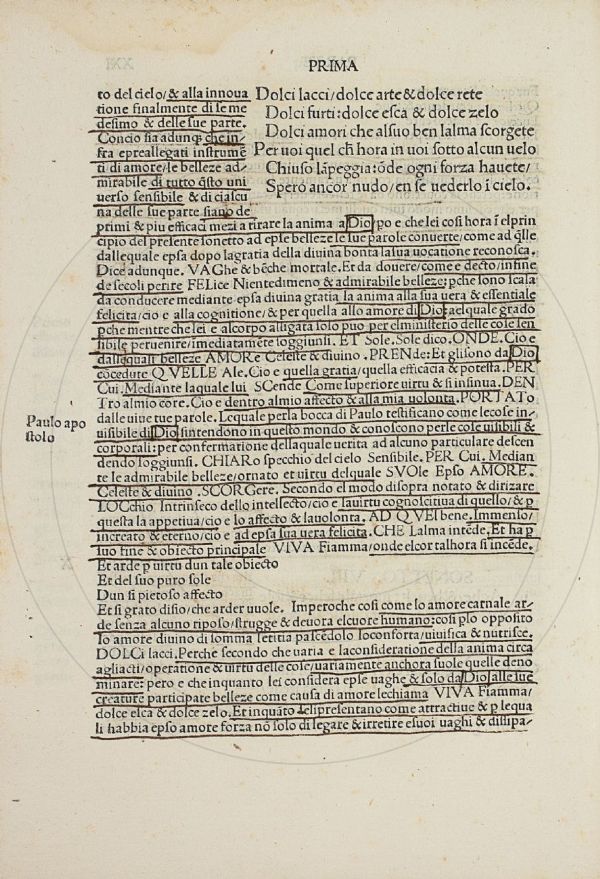 PRIMA
to del cielo/& alla innoua
tione finalmente di se me
desimo & delle sue parte.
Concio sia adunqꝫ che in/
fra epreallegati instrumē
ti di amore/le bellezze ad/
mirabile di tutto q̄sto uni
uerso sensibile & di ciascu
na delle sue parte siano de
Dolci lacci/dolce arte & dolce rete
Dolci furti: dolce esca & dolce zelo
Dolci amori che alsuo ben lalma scorgete
Per uoi quel ch̄ hora in uoi sotto alcun uelo
Chiuso lāpeggia: ōde ogni forza hauete/
Spero ancor nudo/en se uederlo ī cielo.
primi & piu efficaci mezi a tirare la anima a Dio po e che lei cosi hora ī elprin
cipio del presente sonetto ad epse bellezze le sue parole conuerte/come ad q̄lle
dallequale epsa dopo lagratia della diuina bonta lasua uocatione reconosca.
Dice adunque. VAGhe & bēche mortale. Et da douere/come e decto/infine
de secoli perire FELice Nientedimeno & admirabile bellezze: pche sono scala
da conducere mediante epsa diuina gratia la anima alla sua uera & essentiale
felicita/cio e alla cognitione/& per quella allo amore di Dio: aelquale grado
pche mentre che lei e alcorpo alligata solo puo per elministerio delle cose sen
sibile peruenire/immediatamēte soggiunsi. ET Sole. Sole dico. ONDE. Cio e
dallequasi bellezze AMORe Celeste & diuino. PRENde: Et glisono da Dio
cōcedute QVELLE Ale. Cio e quella gratia/quella efficacia & potesta. PER
Cui. Mediante laquale lui SCende Come superiore uirtu & si insinua. DEN
Tro almio core. Cio e dentro almio affecto & alla mia uolonta. PORTATo
dalle uiue tue parole. Lequale perla bocca di Paulo testificano come lecose in/
uisibile di Dio sintendono in questo mondo & conoscono perle cose uisibili &
corporali: per confermatione dellaquale uerita ad alcuno particulare descen
dendo soggiunsi. CHIARo specchio del cielo Sensibile. PER Cui. Median
te le admirabile bellezze/ornato et uirtu delquale SVOle Epso AMORE.
Celeste & diuino. SCORGere. Secondo el modo disopra notato & dirizare
LOCchio Intrinseco dello intellecto/cio e lauirtu cognoscitiua di quello/& p
questa la appetiua/cio e lo affecto & lauolonta. AD QVEl bene. Immenso/
increato & eterno/cio e ad epsa sua uera felicita. CHE Lalma intēde. Et ha p
suo fine & obiecto principale VIVA Fiamma/onde elcor talhora si incēde.
Et arde p uirtu dun tale obiecto
Et del suo puro sole
Dun si pietoso affecto
Et si grato disio/che arder uuole. Imperoche cosi come lo amore carnale ar/
de senza alcuno riposo/strugge & deuora elcuore humano: cosi pso opposito
lo amore diuino di somma letitia pascēdolo loconforta/uiuifica & nutrisce.
DOLCi lacci. Perche secondo che uaria e laconsideratione della anima circa
agliacti/operatione & uirtu delle cose/uariamente anchora suole quelle deno
minare: pero e che inquanto lei considera epse uaghe & solo da Dio alle sue
creature participate bellezze come causa di amore lechiama VIVA Fiamma/
dolce esca & dolce zelo. Et inquāto selipresentano come attractiue & p lequa
li habbia epso amore forza nō solo di legare & irretire esuoi uaghi & dissipa/
Paulo apo
stolo